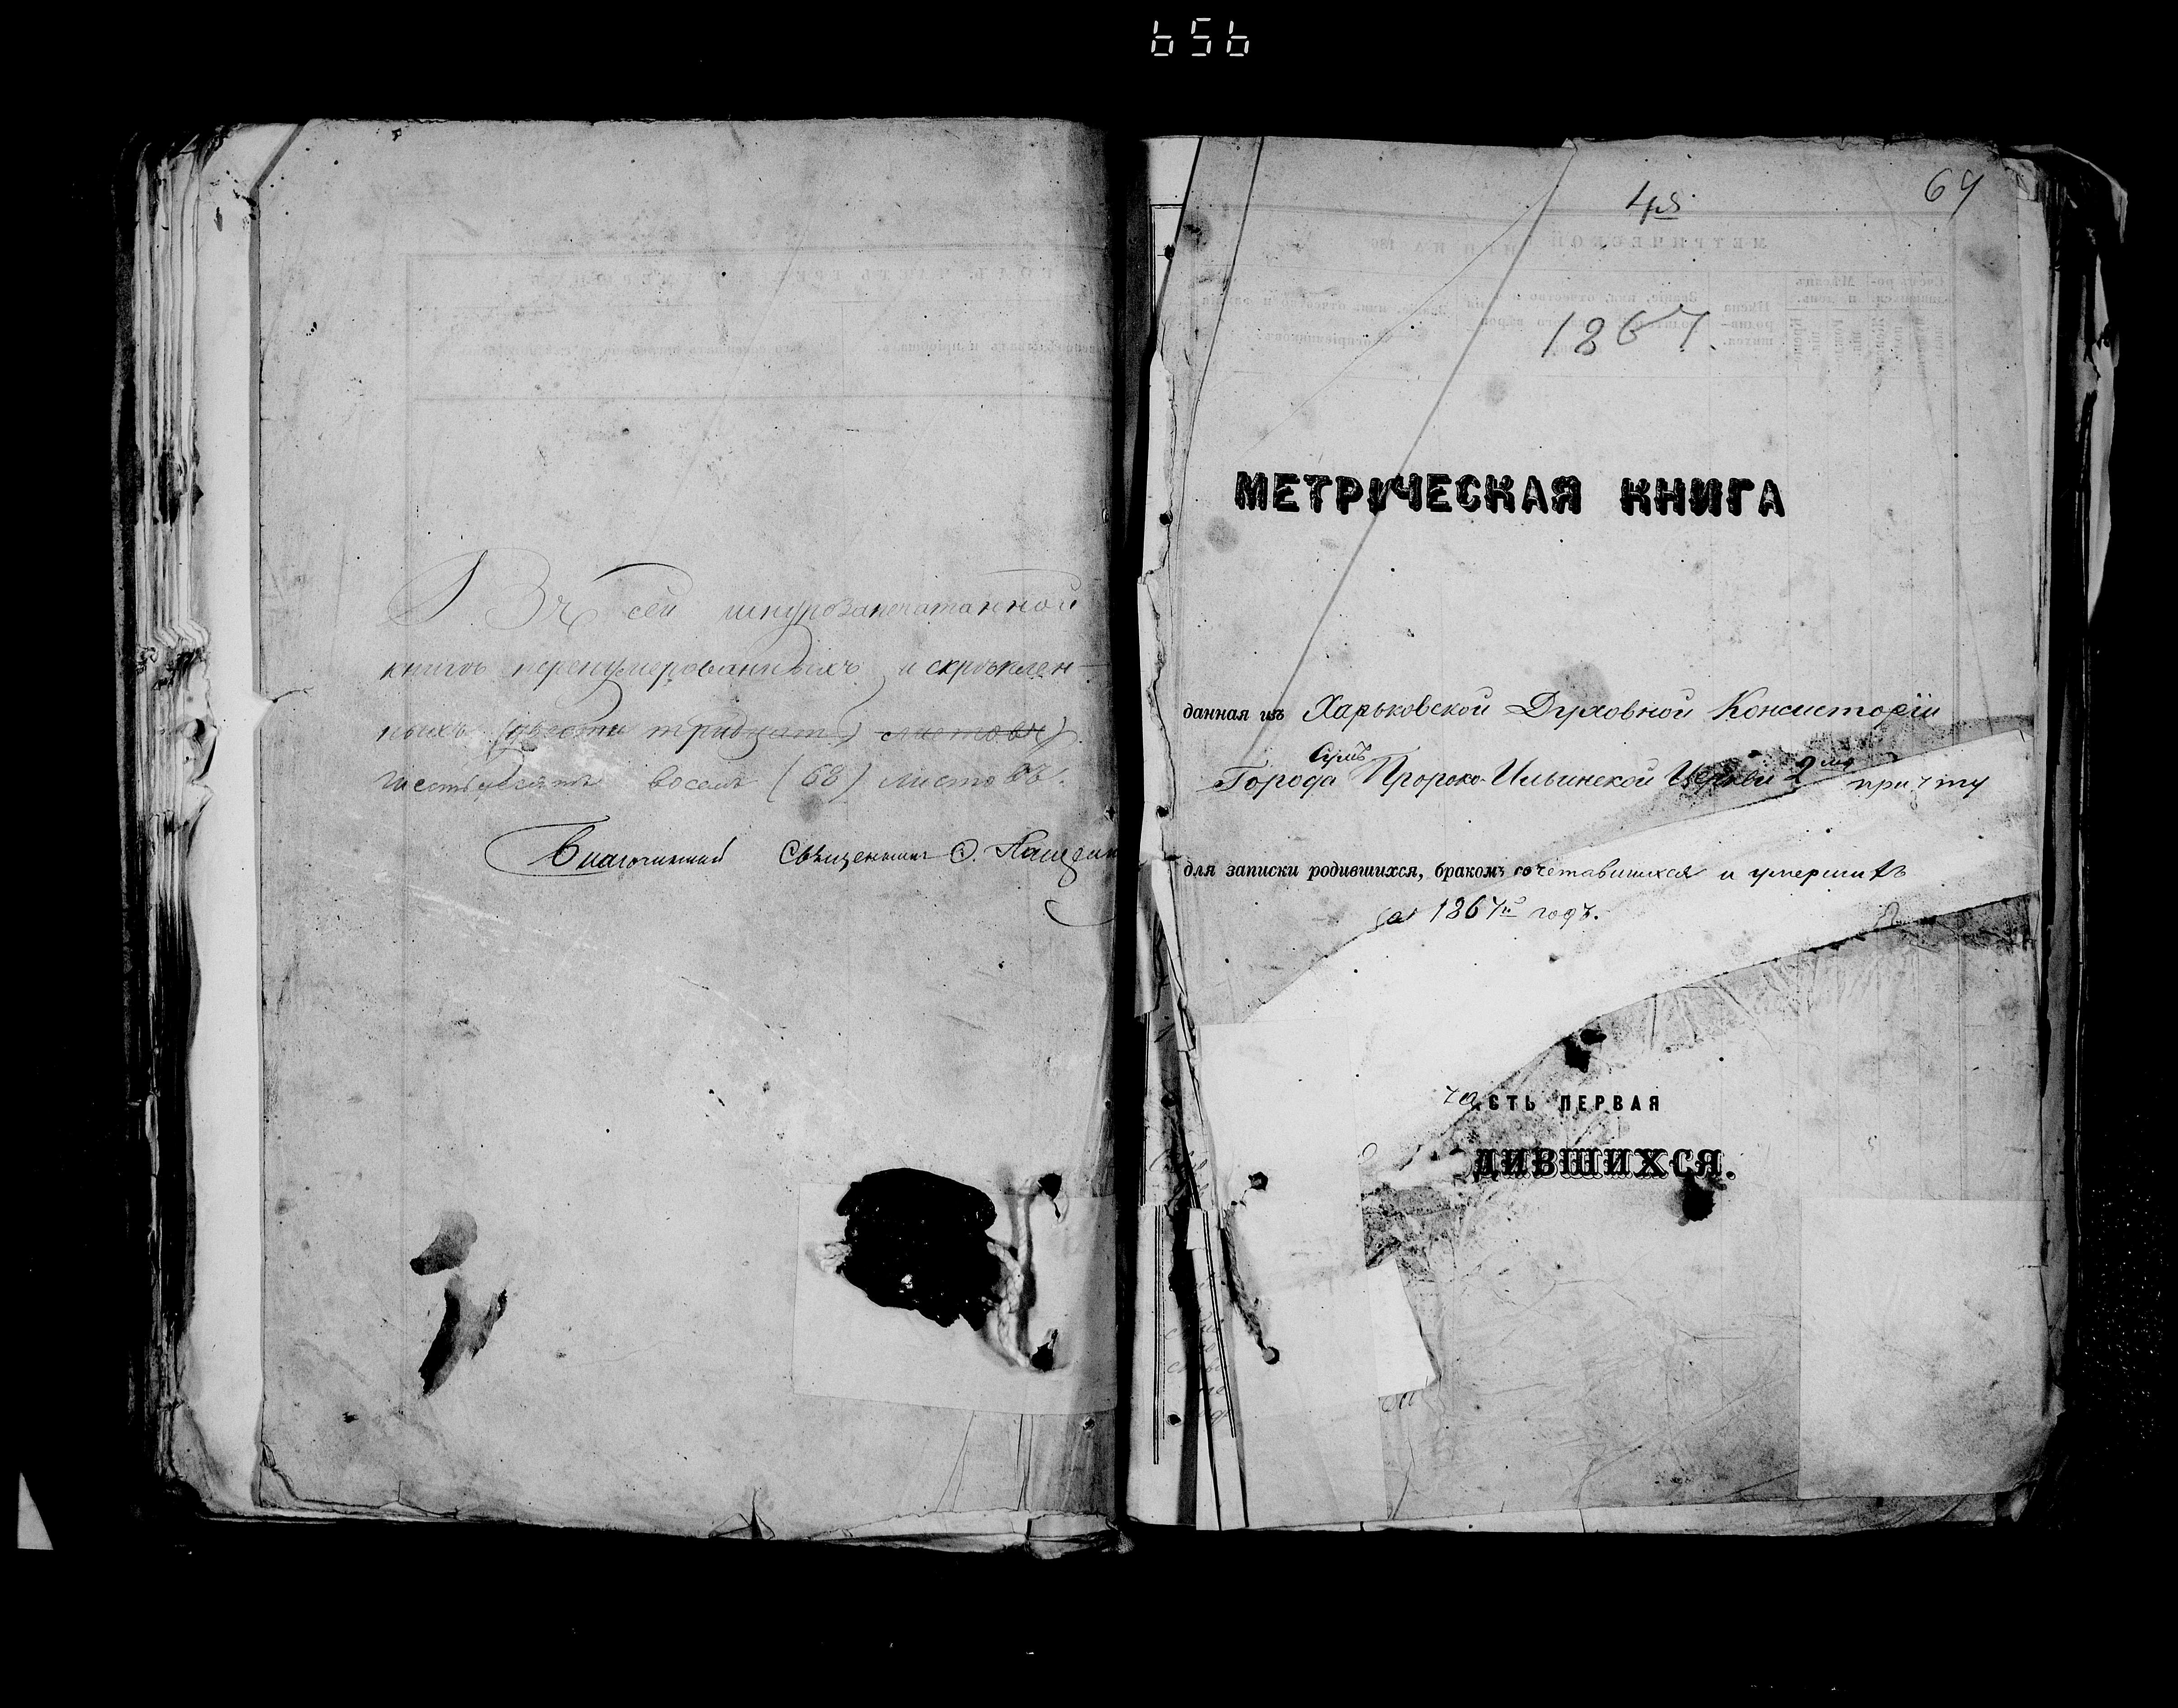 656
Въ сей шнурозапечатанной
книгѣ перенумерованныхъ и скрѣплен-
ныхъ (двѣсти тридцать) листовъ)
шестьдесятъ восемь (68) листовъ.
Благочинный Священникъ
69
1867.
МЕТРИЧЕСКАЯ КНИГА
данная изъ Харьковской Духовной Консисторіи
Сумъ
Города Пророко-Ильинской Церкви 2му причту
для записки родившихся, бракомъ сочетавшихся и умершихъ
за 1867й годъ.
часть ПЕРВАЯ
ДИВШИХСЯ.